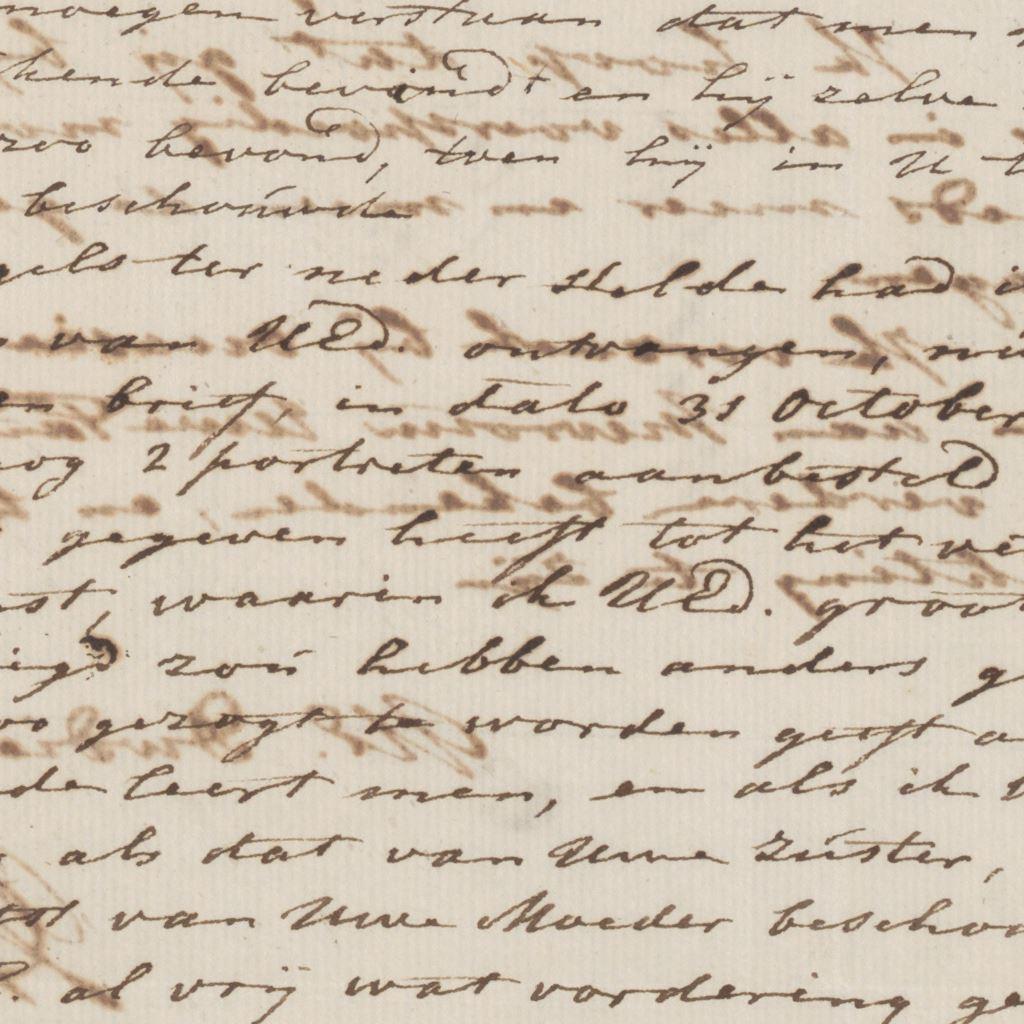 moegen verstaan dat men
kende bevindt en hij zelve
zoo bevond, toen hij in U
beschouwde
ter neder stelde had
van UEd. ontvangen,
brief, in dato 31 October
nog 2 portretten aanbesteld
gegeven heeft tot het
waarin ik UEd. groot
zoú hebben anders
gezogt te worden geeft
leert men, en als ik
als dat van Uwe Zúster,
van Uwe Moeder
al vrij wat vordering